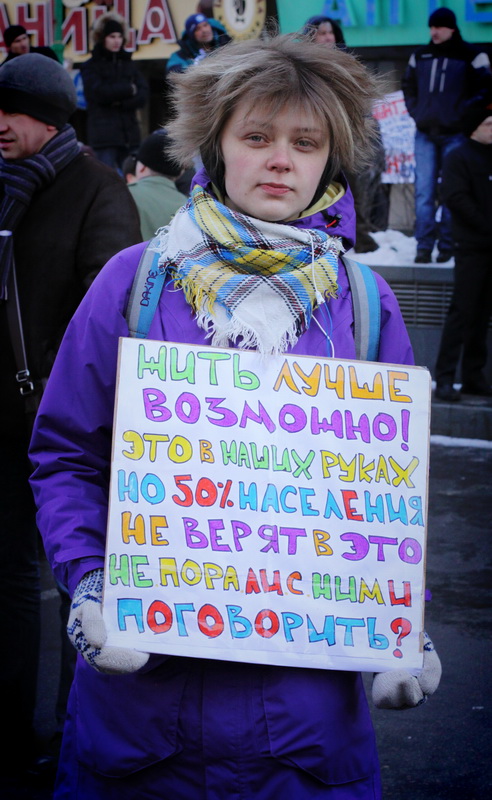 АПТЕ
DAKINE
ЖИТЬ ЛУЧШЕ
ВОЗМОЖНО!
ЭТО В НАШИХ РУКАХ
НО 50% НАСЕЛЕНИЯ
НЕ ВЕРЯТ В ЭТО
НЕ ПОРА ЛИ С НИМИ
ПОГОВОРИТЬ?